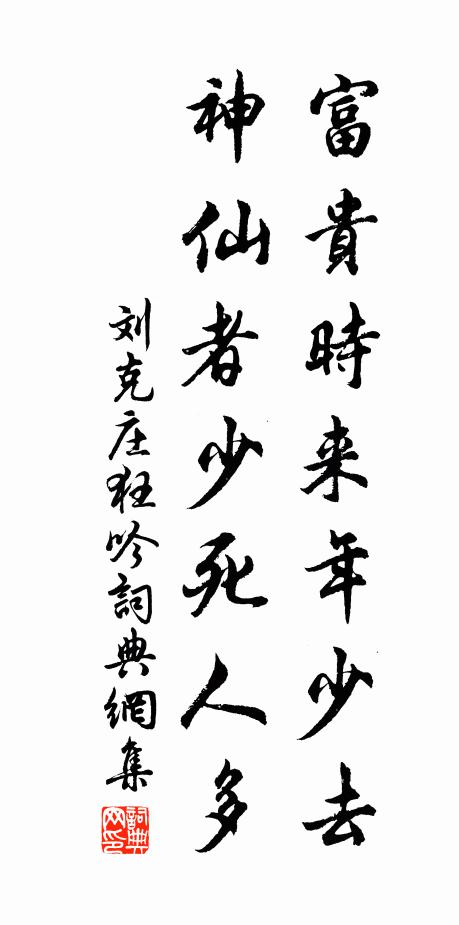 富貴時来年少去
神仙者少死人多
刘克庄狂吟詞典網集
詞典網印